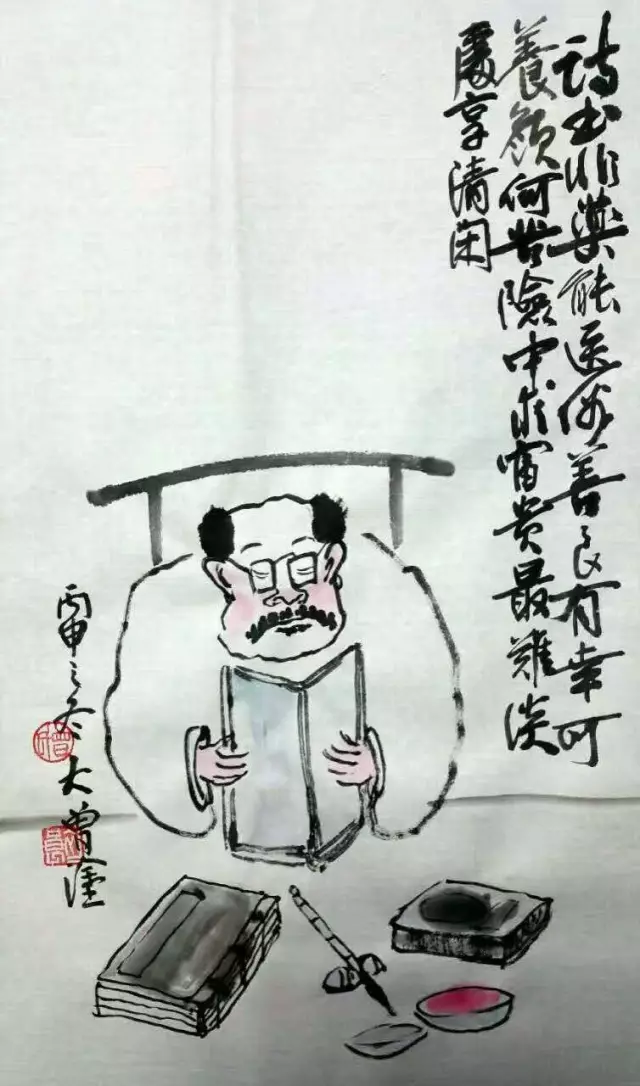 诗书非藥能医俗善良有幸可
養颜何苦險中求富贵最難淡
處享清闲
丙申之冬大曾塗